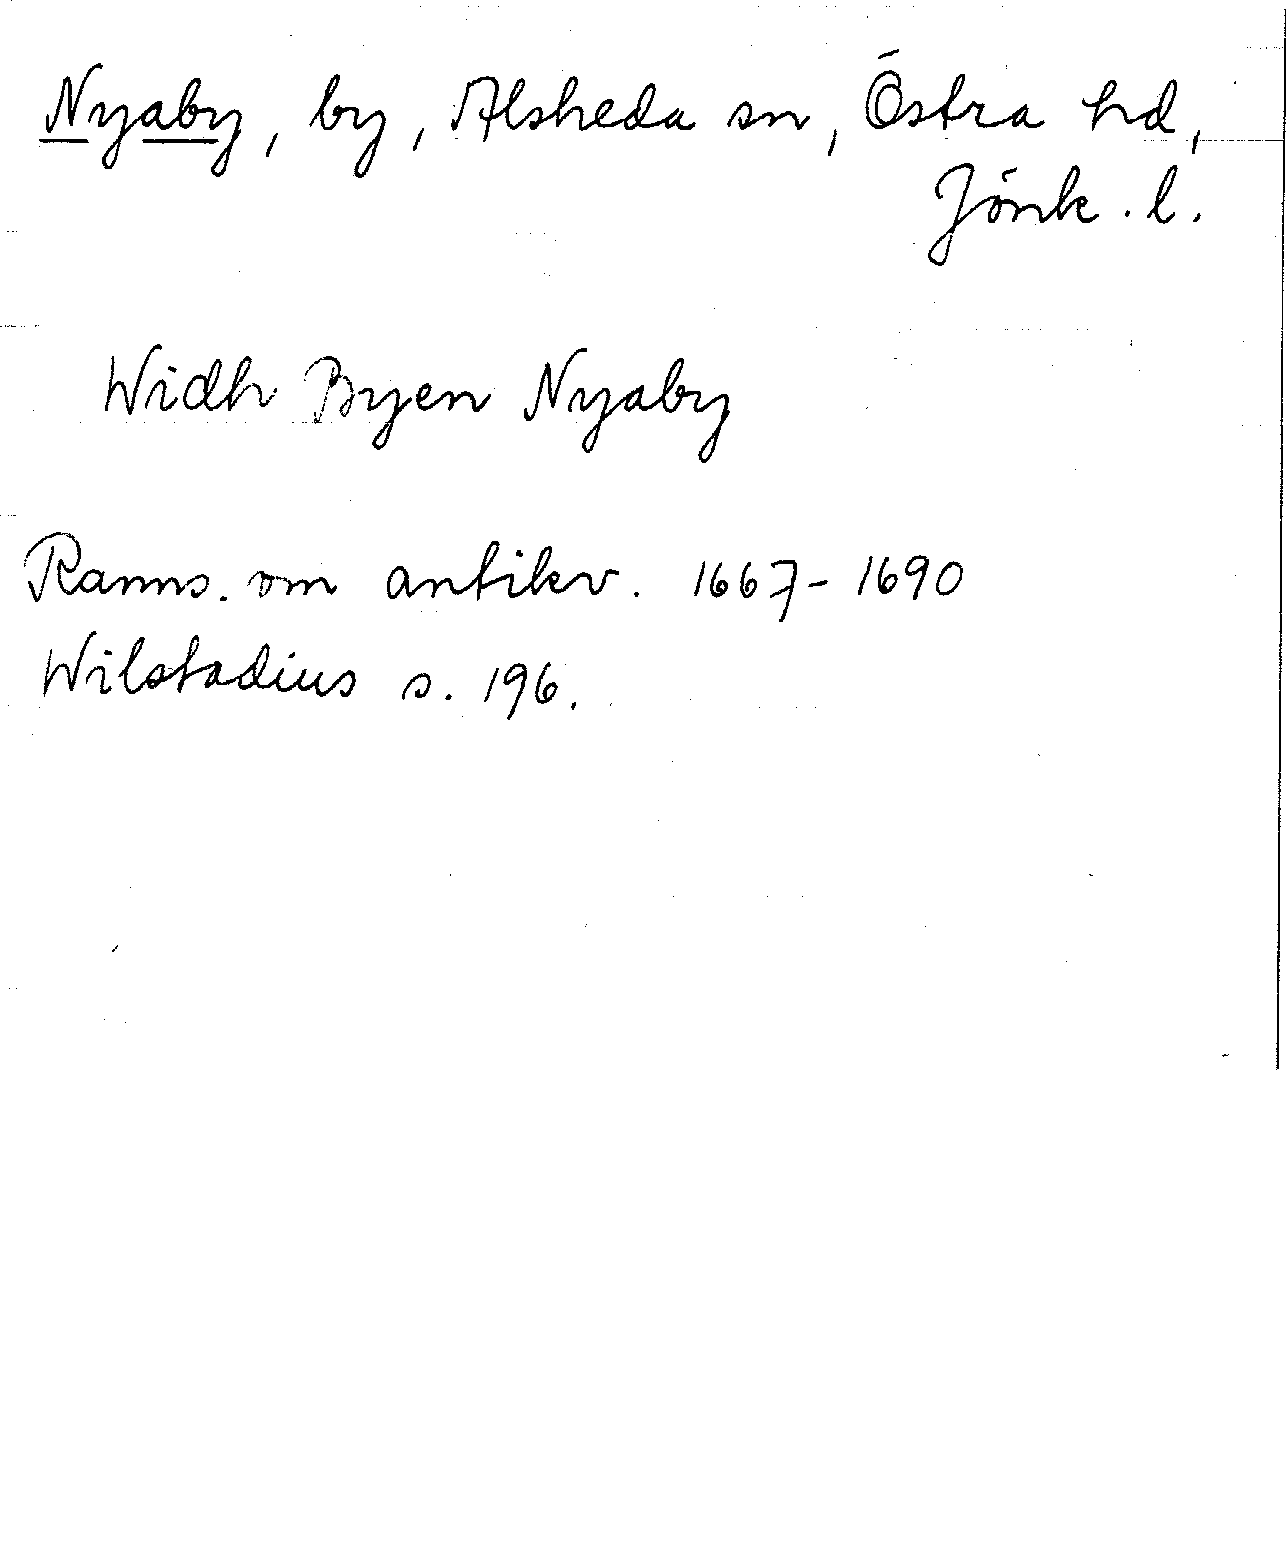 Nyaby, by, Alsheda sn, Östra hd,
Jönk. l.
Widh Byen Nyaby
Ranns. om antikv. 1667-1690
Wilstadius s. 196.